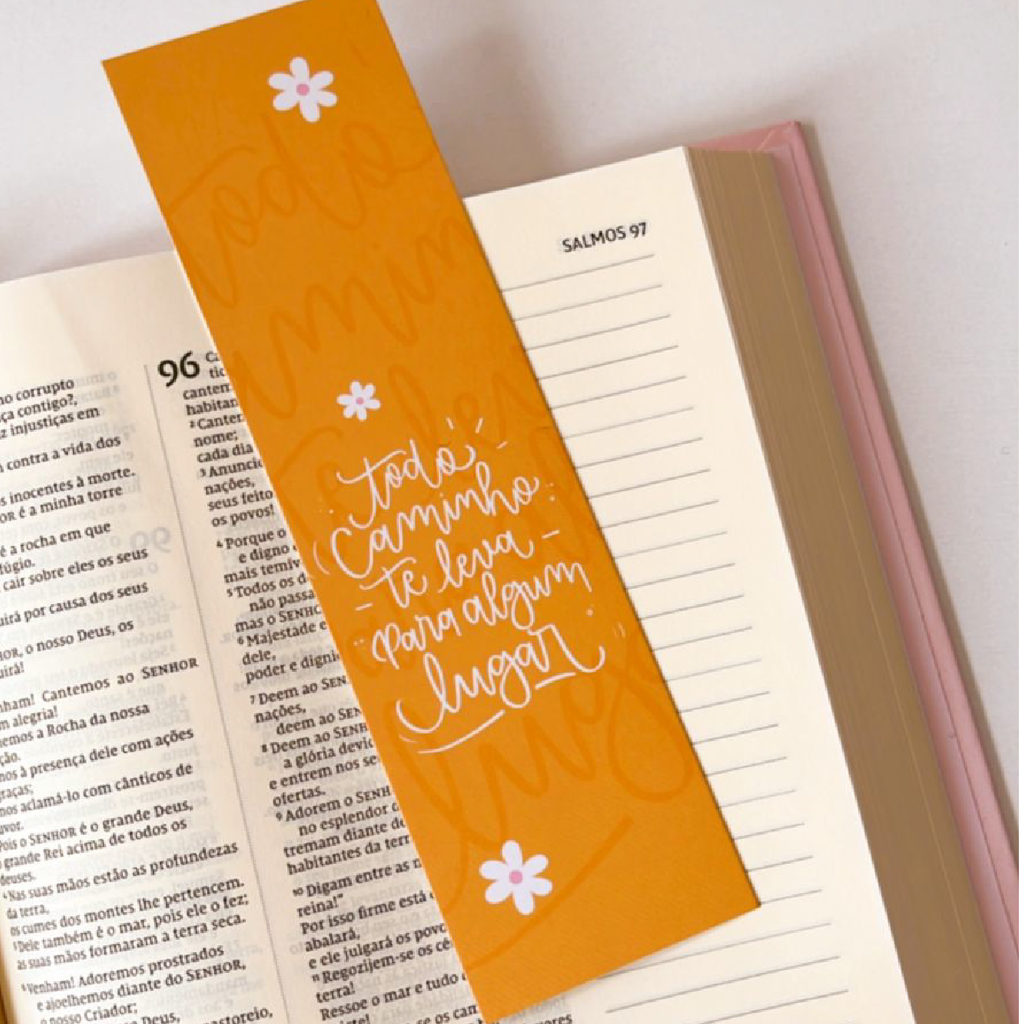 SALMOS 97
todo
caminho
te leva
para algum
lugar
no corrupto
ça contigo?,
z injustiças em
contra a vida dos
s inocentes à morte.
OR é a minha torre
é a rocha em que
fúgio.
cair sobre eles os seus
uirá por causa dos seus
HOR, o nosso Deus, os
uirá!
nham! Cantemos ao SENHOR
m alegria!
emos a Rocha da nossa
ção.
mos à presença dele com ações
graças;
mos aclamá-lo com cânticos de
uvor.
Pois o SENHOR é o grande Deus,
grande Rei acima de todos os
deuses.
4 Nas suas mãos estão as profundezas
da terra,
os cumes dos montes lhe pertencem.
5 Dele também é o mar, pois ele o fez;
as suas mãos formaram a terra seca.
6 Venham! Adoremos prostrados
e ajoelhemos diante do SENHOR,
o nosso Criador;
Deus,
astoreio,
96
cantem
habitan
2 Canter
nome;
cada dia
3 Anuncie
nações,
seus feito
os povos!
4 Porque o
e digno
mais temív
5 Todos os d
não passa
mas o SENHO
6 Majestade e
dele,
poder e digni
7 Deem ao SEN
nações,
deem ao SEN
8 Deem ao SENH
a glória devid
e entrem nos se
ofertas.
9 Adorem o SENH
no esplendor d
tremam diante de
habitantes da terr
10 Digam entre as n
reina!"
Por isso firme está
abalará,
e ele julgará os povo
11 Regozijem-se os cé
terra!
Ressoe o mar e tudo